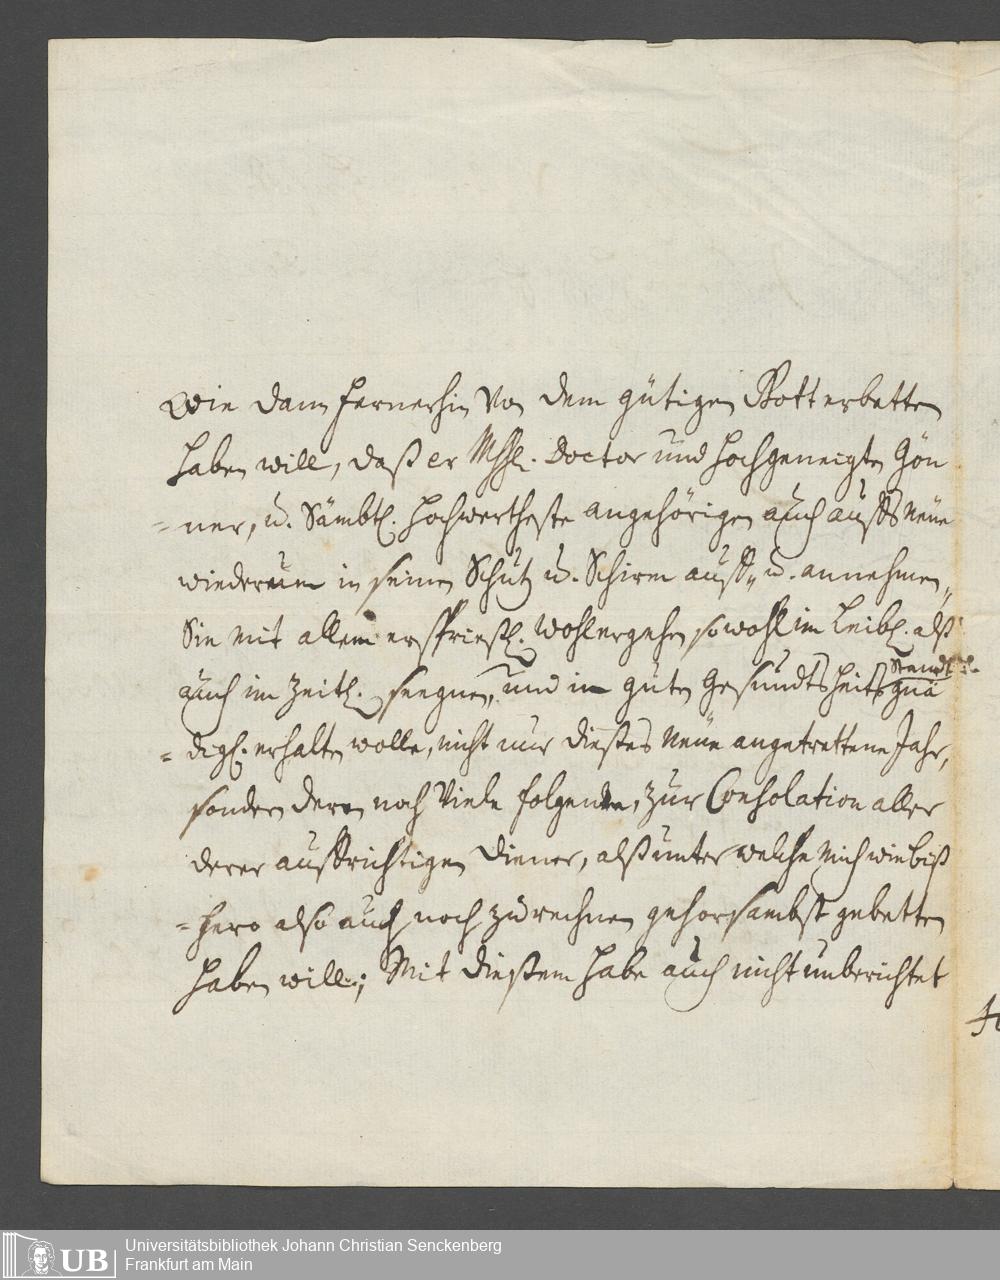 Wie dann fernerhin von dem gütigen Gott erbetten
haben will, daß er Doctor und hochgeneigte Gön
=ner, u. Sämbtl. hochwertheste angehörigen auch auffs Neüe
wiederum in seinen Schutz u. Schirm auff„ u. annehmen„
Sie mit allem ersprießl. wohlergehen sowohl im Leibl. alß
auch im Zeitl. seegnen, und in guten Gesundtsheits Standt gnä
=digl. erhalten wolle, nicht nur dießes Neüe angetrettene Jahr,
sondern deren noch Viele folgende, zur Consolation aller
derer auffrichtigen Diener, alß unter welche mich wie biß
=hero also auch noch zu rechnen gehorsambst gebetten
haben will; Mit dießem habe auch nicht unberichtet
UB
Universitätsbibliothek Johann Christian Senckenberg
Frankfurt am Main